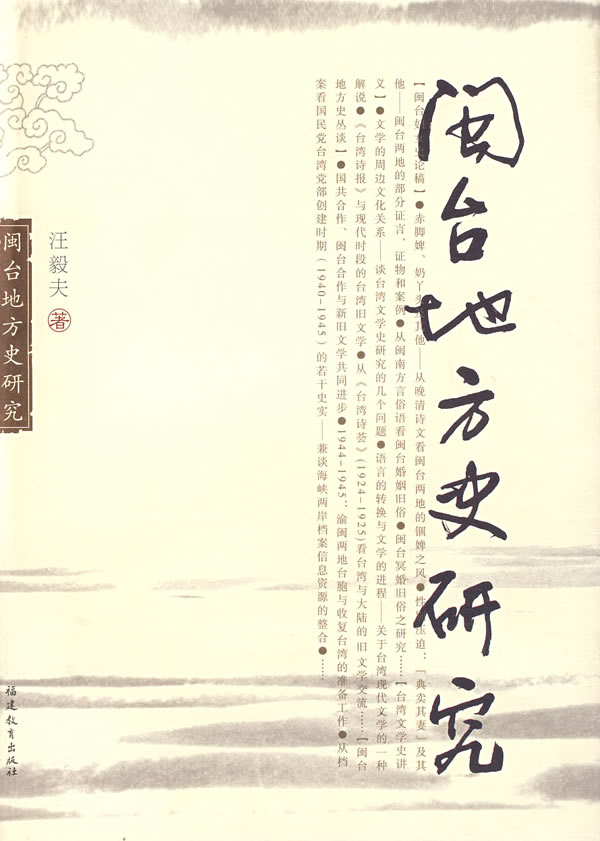 闽台地方史研究
【闽台妇 史论稿】●赤脚婢、奶丫 其他——从晚清诗文看闽台两地的锢婢之风●性 压迫:『典卖其妻』及其
他——闽台两地的部分证言、证物和案例●从闽南方言俗语看闽台婚姻旧俗●闽台冥婚旧俗之研究……【台湾文学史讲
义】●文学的周边文化关系——谈台湾文学史研究的几个问题●语言的转换与文学的进程——关于台湾现代文学的一种
解说●《台湾诗报》与现代时段的台湾旧文学●从《台湾诗荟》(1924-1925)看台湾与大陆的旧文学交流……【闽台
地方史丛谈】●国共合作、闽台合作与新旧文学共同进步●1944-1945:渝闽两地台胞与收复台湾的准备工作●从档
案看国民党台湾党部创建时期(1940-1945)的若干史实——兼谈海峡两岸档案信息资源的整合●……
汪毅夫 著
闽台地方史研究
福建教育出版社